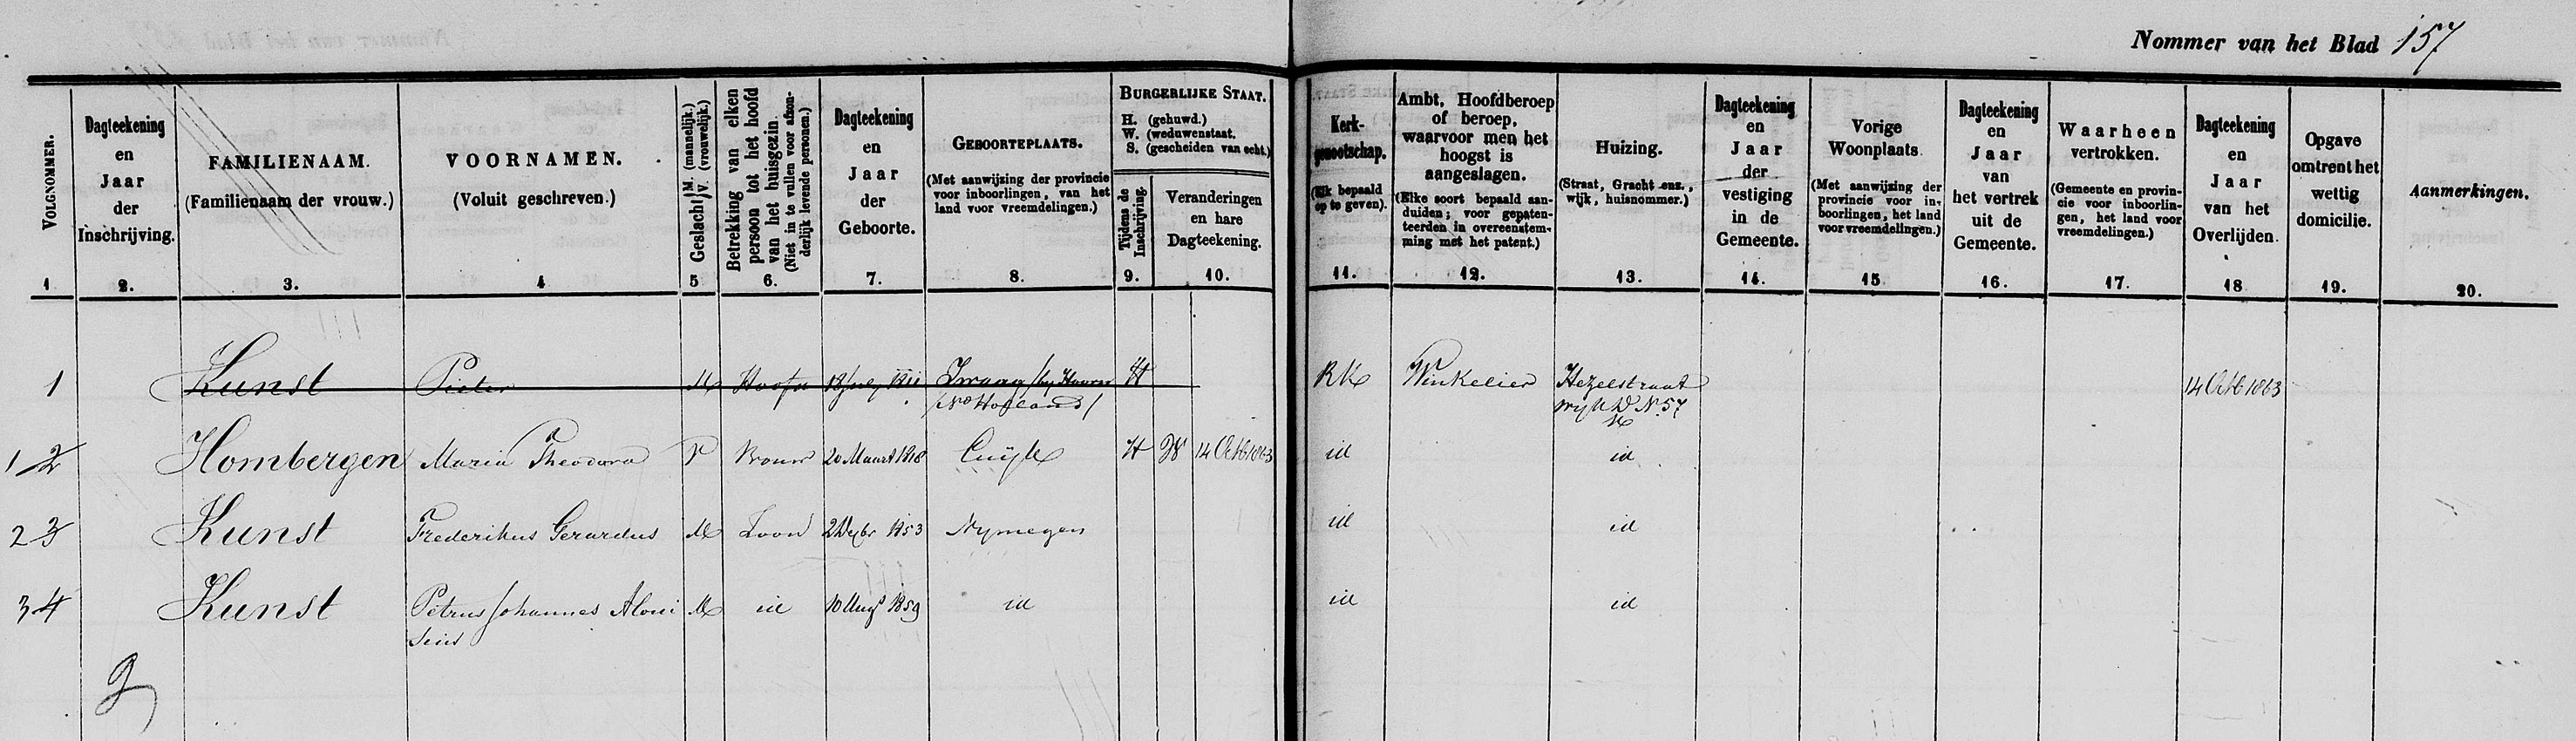 Nommer van het Blad 157
VOLGNOMMER.
Dagteekening
en
Jaar
der
Inschrijving.
FAMILIENAAM.
(Familienaam der vrouw.)
VOORNAMEN.
(Voluit geschreven.)
Geslacht M. (mannelijk.)
V. (vrouwelijk.)
Betrekking van elken
persoon tot het hoofd
van het huisgezin.
(Niet in te vullen voor afzon-
derlijk levende personen.)
Dagteekening
en
Jaar
der
Geboorte.
GEBOORTEPLAATS.
(Met aanwijzing der provincie
voor inboorlingen, van het
land voor vreemdelingen.)
BURGERLIJKE STAAT.
H. (gehuwd.)
W. (weduwenstaat.
S. (gescheiden van echt.)
Tijdens de
Inschrijving.
Veranderingen
en hare
Dagteekening.
Kerk-
genootschap.
(Elk bepaald
op te geven).
Ambt, Hoofdberoep
of beroep,
waarvoor men het
hoogst is
aangeslagen.
(Elke soort bepaald aan-
duiden; voor gepaten-
teerden in overeenstem-
ming met het patent.)
Huizing.
(Straat, Gracht enz.,
wijk, huisnommer.)
Dagteekening
en
Jaar
der
vestiging
in de
Gemeente.
Vorige
Woonplaats.
(Met aanwijzing der
provincie voor in-
boorlingen, het land
voor vreemdelingen.)
Dagteekening
en
Jaar
van
het vertrek
uit de
Gemeente.
Waarheen
vertrokken.
(Gemeente en provin-
cie voor inboorlin-
gen, het land voor
vreemdelingen.)
Dagteekening
en
Jaar
van het
Overlijden.
Opgave
omtrent het
wettig
domicilie.
Aanmerkingen.
1 2. 3. 4 5 6. 7. 8. 9. 10. 11. 12. 13. 14. 15 16. 17. 18 19. 20.
1 Kunst Pieter M Hoofd 18 July 1811 Zwaag /by Hoorn H RK Winkelier Hezelstraat 14 Octb 1863
/No Holland/ wyk D No. 57
1 2 Hombergen Maria Theodora V Vrouw 20 Maart 1818 Cuijk H W 14 Octb 1863 id id
2 3 Kunst Frederikus Gerardus M Zoon Decbr 1853 Nymegen id id
3 4 Kunst Petrus Johannes Aloui M id 10 Augs 1859 id id id
sius